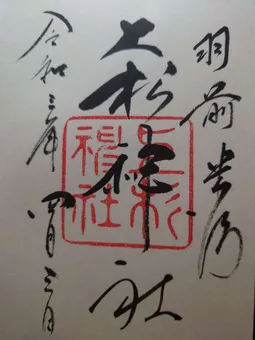 羽前米沢
上杉神社
上杉神社
令和三年四月三日